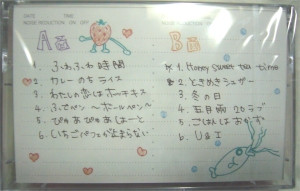 DATE TIME
NOISE REDUCTION ON OFF
A面
1. ふわふわ時間
2. カレーのちライス
3. わたしの恋はホッチキス
4. ふでペン ～ボールペン～
5. ぴゅあぴゅあはーと
6. いちごパフェが止まらない
B面
1. Honey sweet tea time
2. ときめきシュガー
3. 冬の日
4. 五月雨20ラブ
5. ごはんはおかず
6. U&I